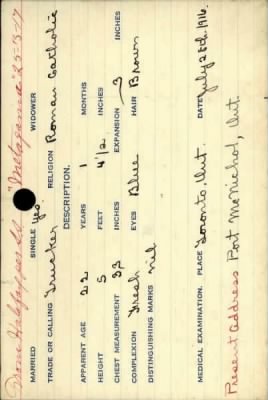 From Halifax per SS "Metagama" 25-5-17
MARRIED SINGLE yes. WIDOWER
TRADE OR CALLING Trucker RELIGION Roman Catholic
DESCRIPTION.
APPARENT AGE 22 YEARS 1 MONTHS
HEIGHT 5 FEET 4 1/2 INCHES
CHEST MEASUREMENT 33 INCHES EXPANSION 3 INCHES
COMPLEXION Fresh EYES Blue HAIR Brown
DISTINGUISHING MARKS nil
MEDICAL EXAMINATION. PLACE Toronto, Ont. DATE July 28th, 1916.
Present Address Port McNichol, Ont.